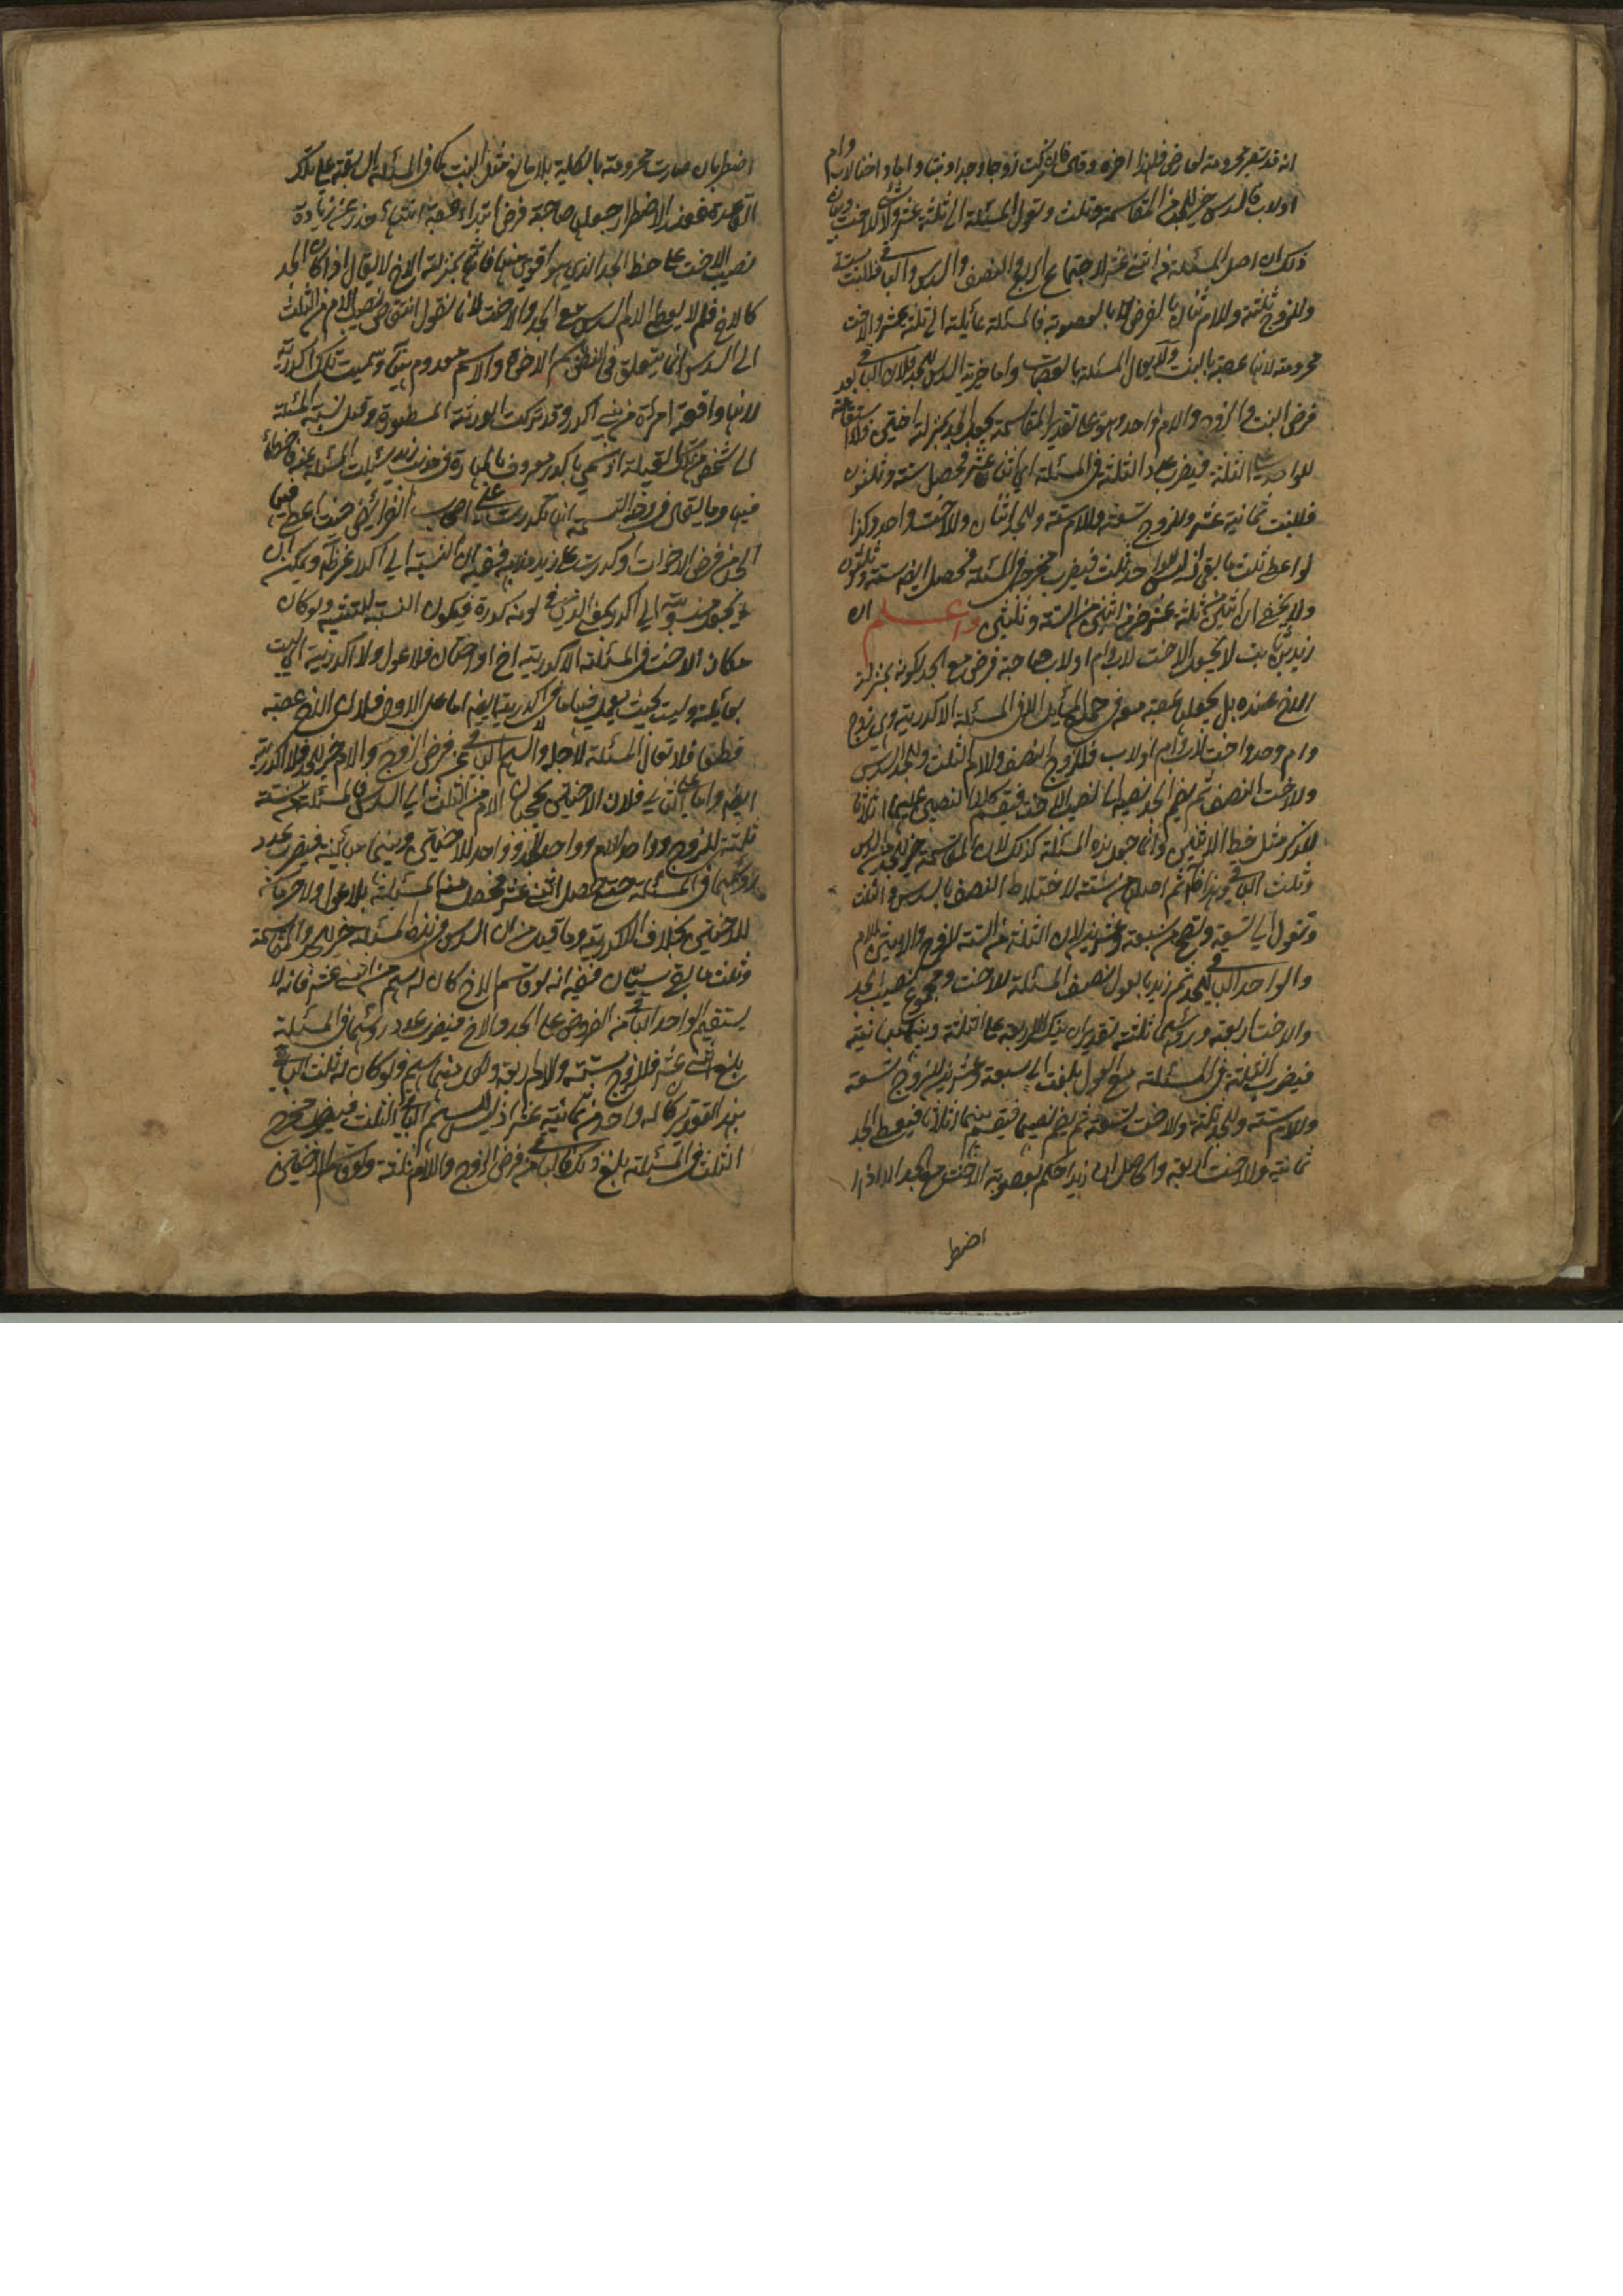 انه قد تصير محرومة لعارض فلهذا اخره وقال فان تركت زوجا وجدا وبنتا واما واختا لاب وام
او لاب فالسدس خير للجد من المقاسمة وثلث وتعول المسئلة الى ثلثة عشر ولا شئ للاخت وبيان
ذلك ان اصل المسئلة من اثنى عشر لاجتماع الربع والنصف والسدس والباقى فللبنت ستة
وللزوج ثلثة وللام اثنان بالفرض لا بالعصوبة فالمسئلة عائلة الى ثلثة عشر والاخت
محرومة لانها عصبة بالبنت ولا يعال المسئلة بالعصبات واما خيرية السدس للجد فلان الباقى بعد
فرض البنت والزوج والام واحد وهو على تقدير المقاسمة يجعل الجد بمنزلة اختين فلا استقامة
للواحد على الثلثة فيضرب عدد الثلثة فى المسئلة اى اثنى عشر فحصل ستة وثلثون
فللبنت ثمانية عشر وللزوج تسعة وللام ستة وللجد اثنان وللاخت واحد وكذا
لو اعطى ثلث ما بقى اذ ليس للواحد ثلث فيضرب مخرجه فى المسئلة فحصل ايضا ستة وثلثون
ولا يخفى ان اثنين من ثلثة عشر خير من اثنين من الستة وثلثين واعلم ان
زيد بن ثابت لا يجعل الاخت لاب وام او لاب صاحبة فرض مع الجد لكونه بمنزلة
الاخ عنده بل يجعلها عصبة معه فى جميع المسائل الا فى المسئلة الاكدرية وهى زوج
وام وجد واخت لاب وام او لاب فللزوج النصف وللام الثلث وللجد السدس
وللاخت النصف ثم يضم الجد نصيبه الى نصيب الاخت فيقسم كلا النصيبين عليهما اثلاثا
للذكر مثل حظ الانثيين وانما جعل هذه المسئلة كذلك لان المقاسمة خير للجد من السدس
وثلث الباقى وهذا ظاهر ثم اصلها من ستة لاختلاط النصف بالسدس والثلث
وتعول الى تسعة وتصح من سبعة وعشرين لان الثلثة من الستة للزوج والاثنين للام
والواحد الباقى للجد ثم زيد بالعول نصف المسئلة للاخت ومجموع نصيب الجد
والاخت اربعة ورؤسهما ثلثة بتقدير ان ينكسر الاربعة على الثلثة وبينهما مباينة
فيضرب الثلثة فى المسئلة مع العول بلغت الى سبعة وعشرين للزوج تسعة
وللام ستة وللجد ثلثة وللاخت تسعة ثم يضم نصيبهما فيقسم بينهما اثلاثا فيعطى الجد
ثمانية وللاخت اربعة والحاصل ان زيدا حكم بعصوبة الاخت مع الجد الا اذا
اضطر
اضطر بان صارت محرومة بالكلية بلا مانع مثل البنت كما فى المسئلة السابقة على تلك
القاعدة فعند الاضطرار جعلها صاحبة فرض ابتداء وعصبة انتهاء حذرا عن زيادة
نصيب الاخت على حظ الجد الذى هو اقوى منها فانه بمنزلة الاخ لا يقال اذا كان الجد
كالاخ فلم لا يعطى الام السدس مع الجد والاخت لانا نقول انتقاص نصيب الام من الثلث
الى السدس انما يتعلق فى النص باسم الاخوة والاسم معدوم هنا وسميت تلك اكدرية
لانها واقعة امراة من بنى اكدر وقد تركت الورثة المسطورة وقيل نسبة المسئلة
الى شخص من تلك القبيلة او سمى باكدر معروف بالمهارة فى مذهب زيد سئلت المسئلة عنه فاخطأ
فيها وما يقال فى وجه التسمية انها تكدرت على اصحاب الفرائض حيث اعطى فيها
الجد من فرض الاخوات او كدرت على زيد مذهبه ففيه ان النسبة الى اكدر غير ظاهر ويمكن ان
يجعل منسوبة الى اكدر بمعنى الذى فى لونه كدورة فيكون النسبة للتشبيه ولو كان
مكان الاخت فى المسئلة الاكدرية اخ او اختان فلا عول ولا اكدرية اى ليست
بعائلة وليست بحيث يعد فيها ما فى اكدرية ايضا اما على الاول فلان الاخ عصبة
قطعا فلا تعال المسئلة لاجله والسهم الباقى عن فرض الزوج والام خير للجد فلا اكدرية
ايضا واما على الثانى فلان الاختين تحجبان الام من الثلث الى السدس فالمسئلة من ستة
ثلثة للزوج وواحد للام وواحد للجد وواحد للاختين وبينهما مباينة فيضرب عدد
رؤسهما فى المسئلة حتى يحصل اثنى عشر فحصل منه المسئلة بلا عول ولا حرمان
للاختين بخلاف الاكدرية وما قيل من ان السدس فى هذه المسئلة خير للجد والمقاسمة
وثلث ما بقى سيان ففيه انه لو قاسم الاخ كان له سهم من اثنى عشر فانه لا
يستقيم الواحد الباقى من الفروض على الجد والاخ فيضرب عدد رؤسهما فى المسئلة
بلغ اثنى عشر فللزوج ستة وللام اربعة ولكل منهما سهم ولو كان له ثلث الباقى
بهذا التقدير كان له واحد من ثمانية عشر اذ ليس للسهم الباقى الثلث فيضرب مخرج
الثلث فى المسئلة بلغ ذلك فالباقى من فرض الزوج والام ثلثة ولو قاسم الاختين